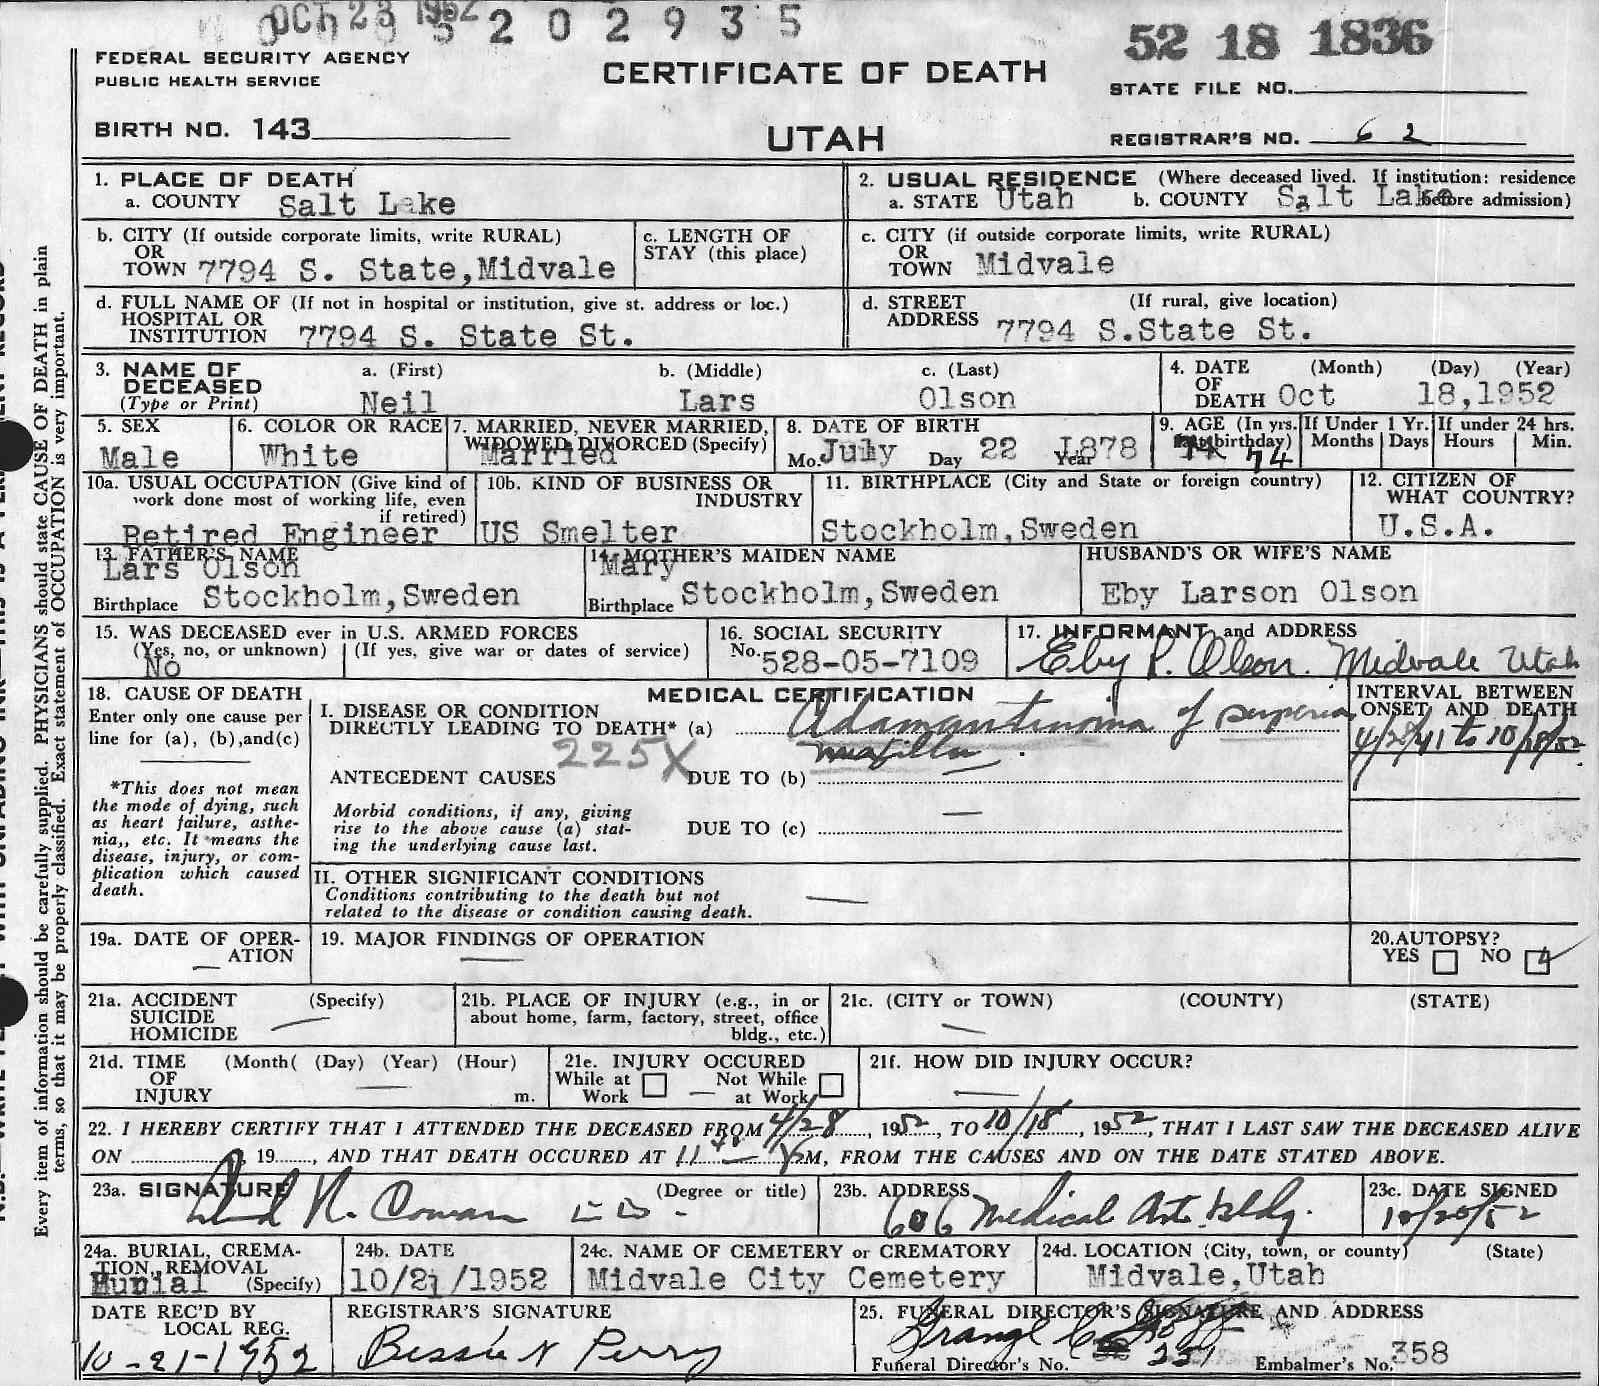 OCT 23 1952
5 2 0 2 9 3 5
52 18 1836
FEDERAL SECURITY AGENCY
PUBLIC HEALTH SERVICE
CERTIFICATE OF DEATH
STATE FILE NO.
BIRTH NO. 143
UTAH
REGISTRAR'S NO. 62
1. PLACE OF DEATH
a. COUNTY Salt Lake
2. USUAL RESIDENCE (Where deceased lived. If institution: residence before admission)
a. STATE Utah b. COUNTY Salt Lake
b. CITY (If outside corporate limits, write RURAL)
OR
TOWN 7794 S. State,Midvale
c. LENGTH OF
STAY (this place)
c. CITY (if outside corporate limits, write RURAL)
OR
TOWN Midvale
d. FULL NAME OF (If not in hospital or institution, give st. address or loc.)
HOSPITAL OR
INSTITUTION 7794 S. State St.
d. STREET (If rural, give location)
ADDRESS 7794 S.State St.
3. NAME OF
DECEASED
(Type or Print)
a. (First) b. (Middle) c. (Last)
Neil Lars Olson
4. DATE (Month) (Day) (Year)
OF
DEATH Oct 18,1952
5. SEX
Male
6. COLOR OR RACE
White
7. MARRIED, NEVER MARRIED,
WIDOWED DIVORCED (Specify)
Married
8. DATE OF BIRTH
Mo. July Day 22 Year 1878
9. AGE (In yrs. last birthday)
74
If Under 1 Yr.
Months Days
If under 24 hrs.
Hours Min.
10a. USUAL OCCUPATION (Give kind of
work done most of working life, even
if retired)
Retired Engineer
10b. KIND OF BUSINESS OR
INDUSTRY
US Smelter
11. BIRTHPLACE (City and State or foreign country)
Stockholm,Sweden
12. CITIZEN OF
WHAT COUNTRY?
U.S.A.
13. FATHER'S NAME
Lars Olson
Birthplace Stockholm,Sweden
14. MOTHER'S MAIDEN NAME
Mary
Birthplace Stockholm,Sweden
HUSBAND'S OR WIFE'S NAME
Eby Larson Olson
15. WAS DECEASED ever in U.S. ARMED FORCES
(Yes, no, or unknown) (If yes, give war or dates of service)
No
16. SOCIAL SECURITY
No. 528-05-7109
17. INFORMANT and ADDRESS
Eby L. Olson. Midvale Utah
18. CAUSE OF DEATH
Enter only one cause per
line for (a), (b),and(c)
*This does not mean
the mode of dying, such
as heart failure, asthe-
nia,, etc. It means the
disease, injury, or com-
plication which caused
death.
MEDICAL CERTIFICATION
I. DISEASE OR CONDITION
DIRECTLY LEADING TO DEATH* (a) Adamantinoma of superior
maxilla.
225X
ANTECEDENT CAUSES DUE TO (b)
Morbid conditions, if any, giving
rise to the above cause (a) stat-
ing the underlying cause last.
DUE TO (c)
INTERVAL BETWEEN
ONSET AND DEATH
4/28/41 to 10/18/52
II. OTHER SIGNIFICANT CONDITIONS
Conditions contributing to the death but not
related to the disease or condition causing death.
19a. DATE OF OPER-
ATION
19. MAJOR FINDINGS OF OPERATION
20.AUTOPSY?
YES NO
21a. ACCIDENT (Specify)
SUICIDE
HOMICIDE
21b. PLACE OF INJURY (e.g., in or
about home, farm, factory, street, office
bldg., etc.)
21c. (CITY or TOWN) (COUNTY) (STATE)
21d. TIME (Month( (Day) (Year) (Hour)
OF
INJURY m.
21e. INJURY OCCURED
While at Work Not While at Work
21f. HOW DID INJURY OCCUR?
22. I HEREBY CERTIFY THAT I ATTENDED THE DECEASED FROM 4/28, 1952, TO 10/18, 1952, THAT I LAST SAW THE DECEASED ALIVE
ON 19......, AND THAT DEATH OCCURED AT 11 M, FROM THE CAUSES AND ON THE DATE STATED ABOVE.
23a. SIGNATURE (Degree or title)
N. Cowan
23b. ADDRESS
606 Medical Arts bldg.
23c. DATE SIGNED
10/20/52
24a. BURIAL, CREMA-
TION, REMOVAL
(Specify)
Burial
24b. DATE
10/21/1952
24c. NAME OF CEMETERY or CREMATORY
Midvale City Cemetery
24d. LOCATION (City, town, or county) (State)
Midvale,Utah
DATE REC'D BY
LOCAL REG.
10-21-1952
REGISTRAR'S SIGNATURE
Bessie N Perry
25. FUNERAL DIRECTOR'S SIGNATURE AND ADDRESS
Funeral Director's No. 231 Embalmer's No. 358
Every item of information should be carefully supplied. PHYSICIANS should state CAUSE OF DEATH in plain
terms, so that it may be properly classified. Exact statement of OCCUPATION is very important.